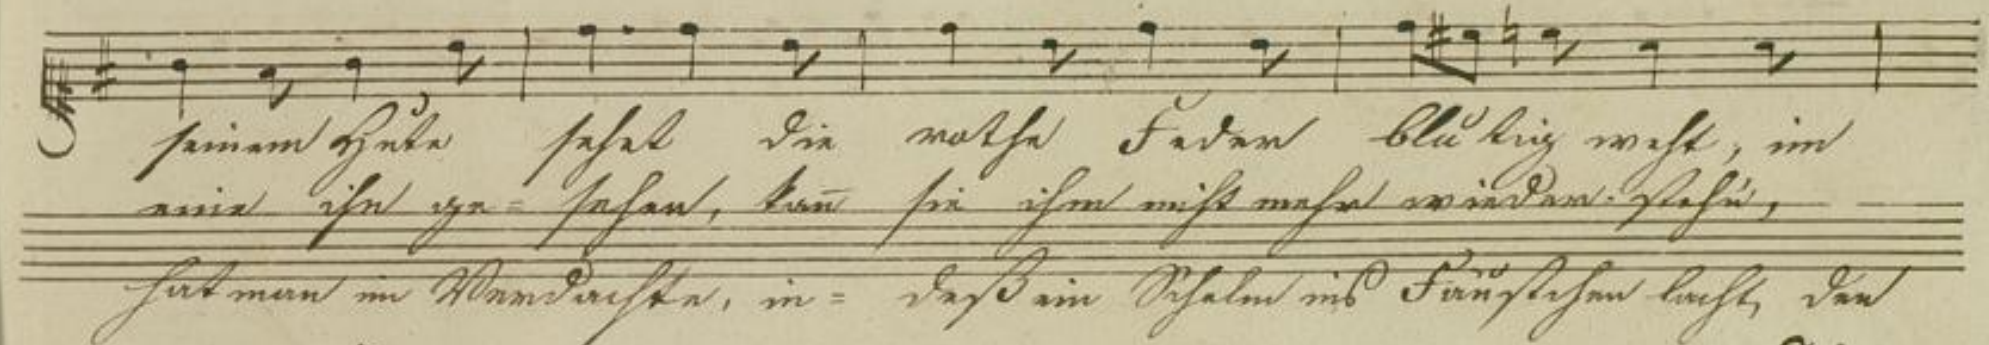 seinem Hute sehet die rothe Feder blutig weht, im
eine ihn ge= sehen, kan̅ sie ihm nicht mehr wieder. stehn,
hat man im Verdachte, in= deß ein Schelm ins Fäustchen lacht, den